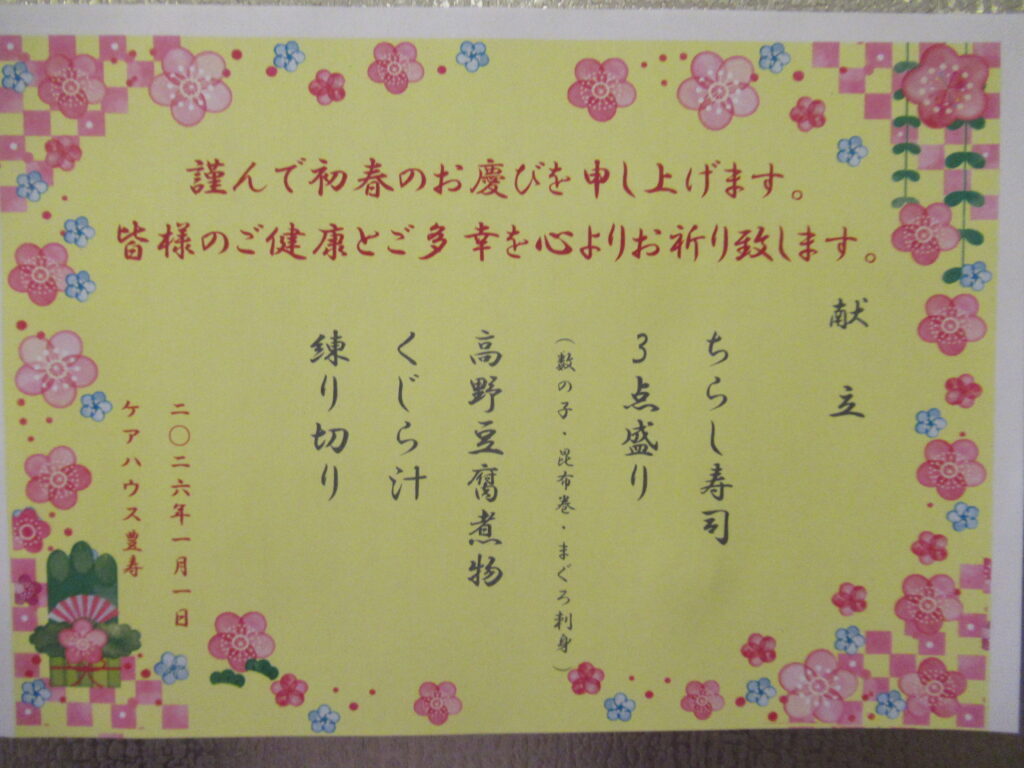 謹んで初春のお慶びを申し上げます。
皆様のご健康とご多幸を心よりお祈り致します。
献立
ちらし寿司
3点盛り
（数の子・昆布巻・まぐろ刺身）
高野豆腐煮物
くじら汁
練り切り
二〇二六年一月一日
ケアハウス豊寿